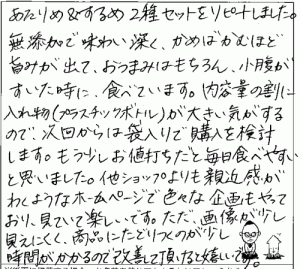 あたりめ&するめ2種セットをリピートしました。
無添加で味わい深く、かめばかむほど
旨みが出て、おつまみはもちろん、小腹が
すいた時に、食べています。内容量の割に
入れ物(プラスチックボトル)が大きい気がする
ので、次回からは袋入りで購入を検討
します。もう少しお値打ちだと毎日食べやすい
と思いました。他ショップよりも親近感が
わくようなホームページで色々な企画もやって
おり、見ていて楽しいです。ただ、画像が少し
見えにくく、商品にたどりつくのが少し
時間がかかるので改善して頂けると嬉しいです。